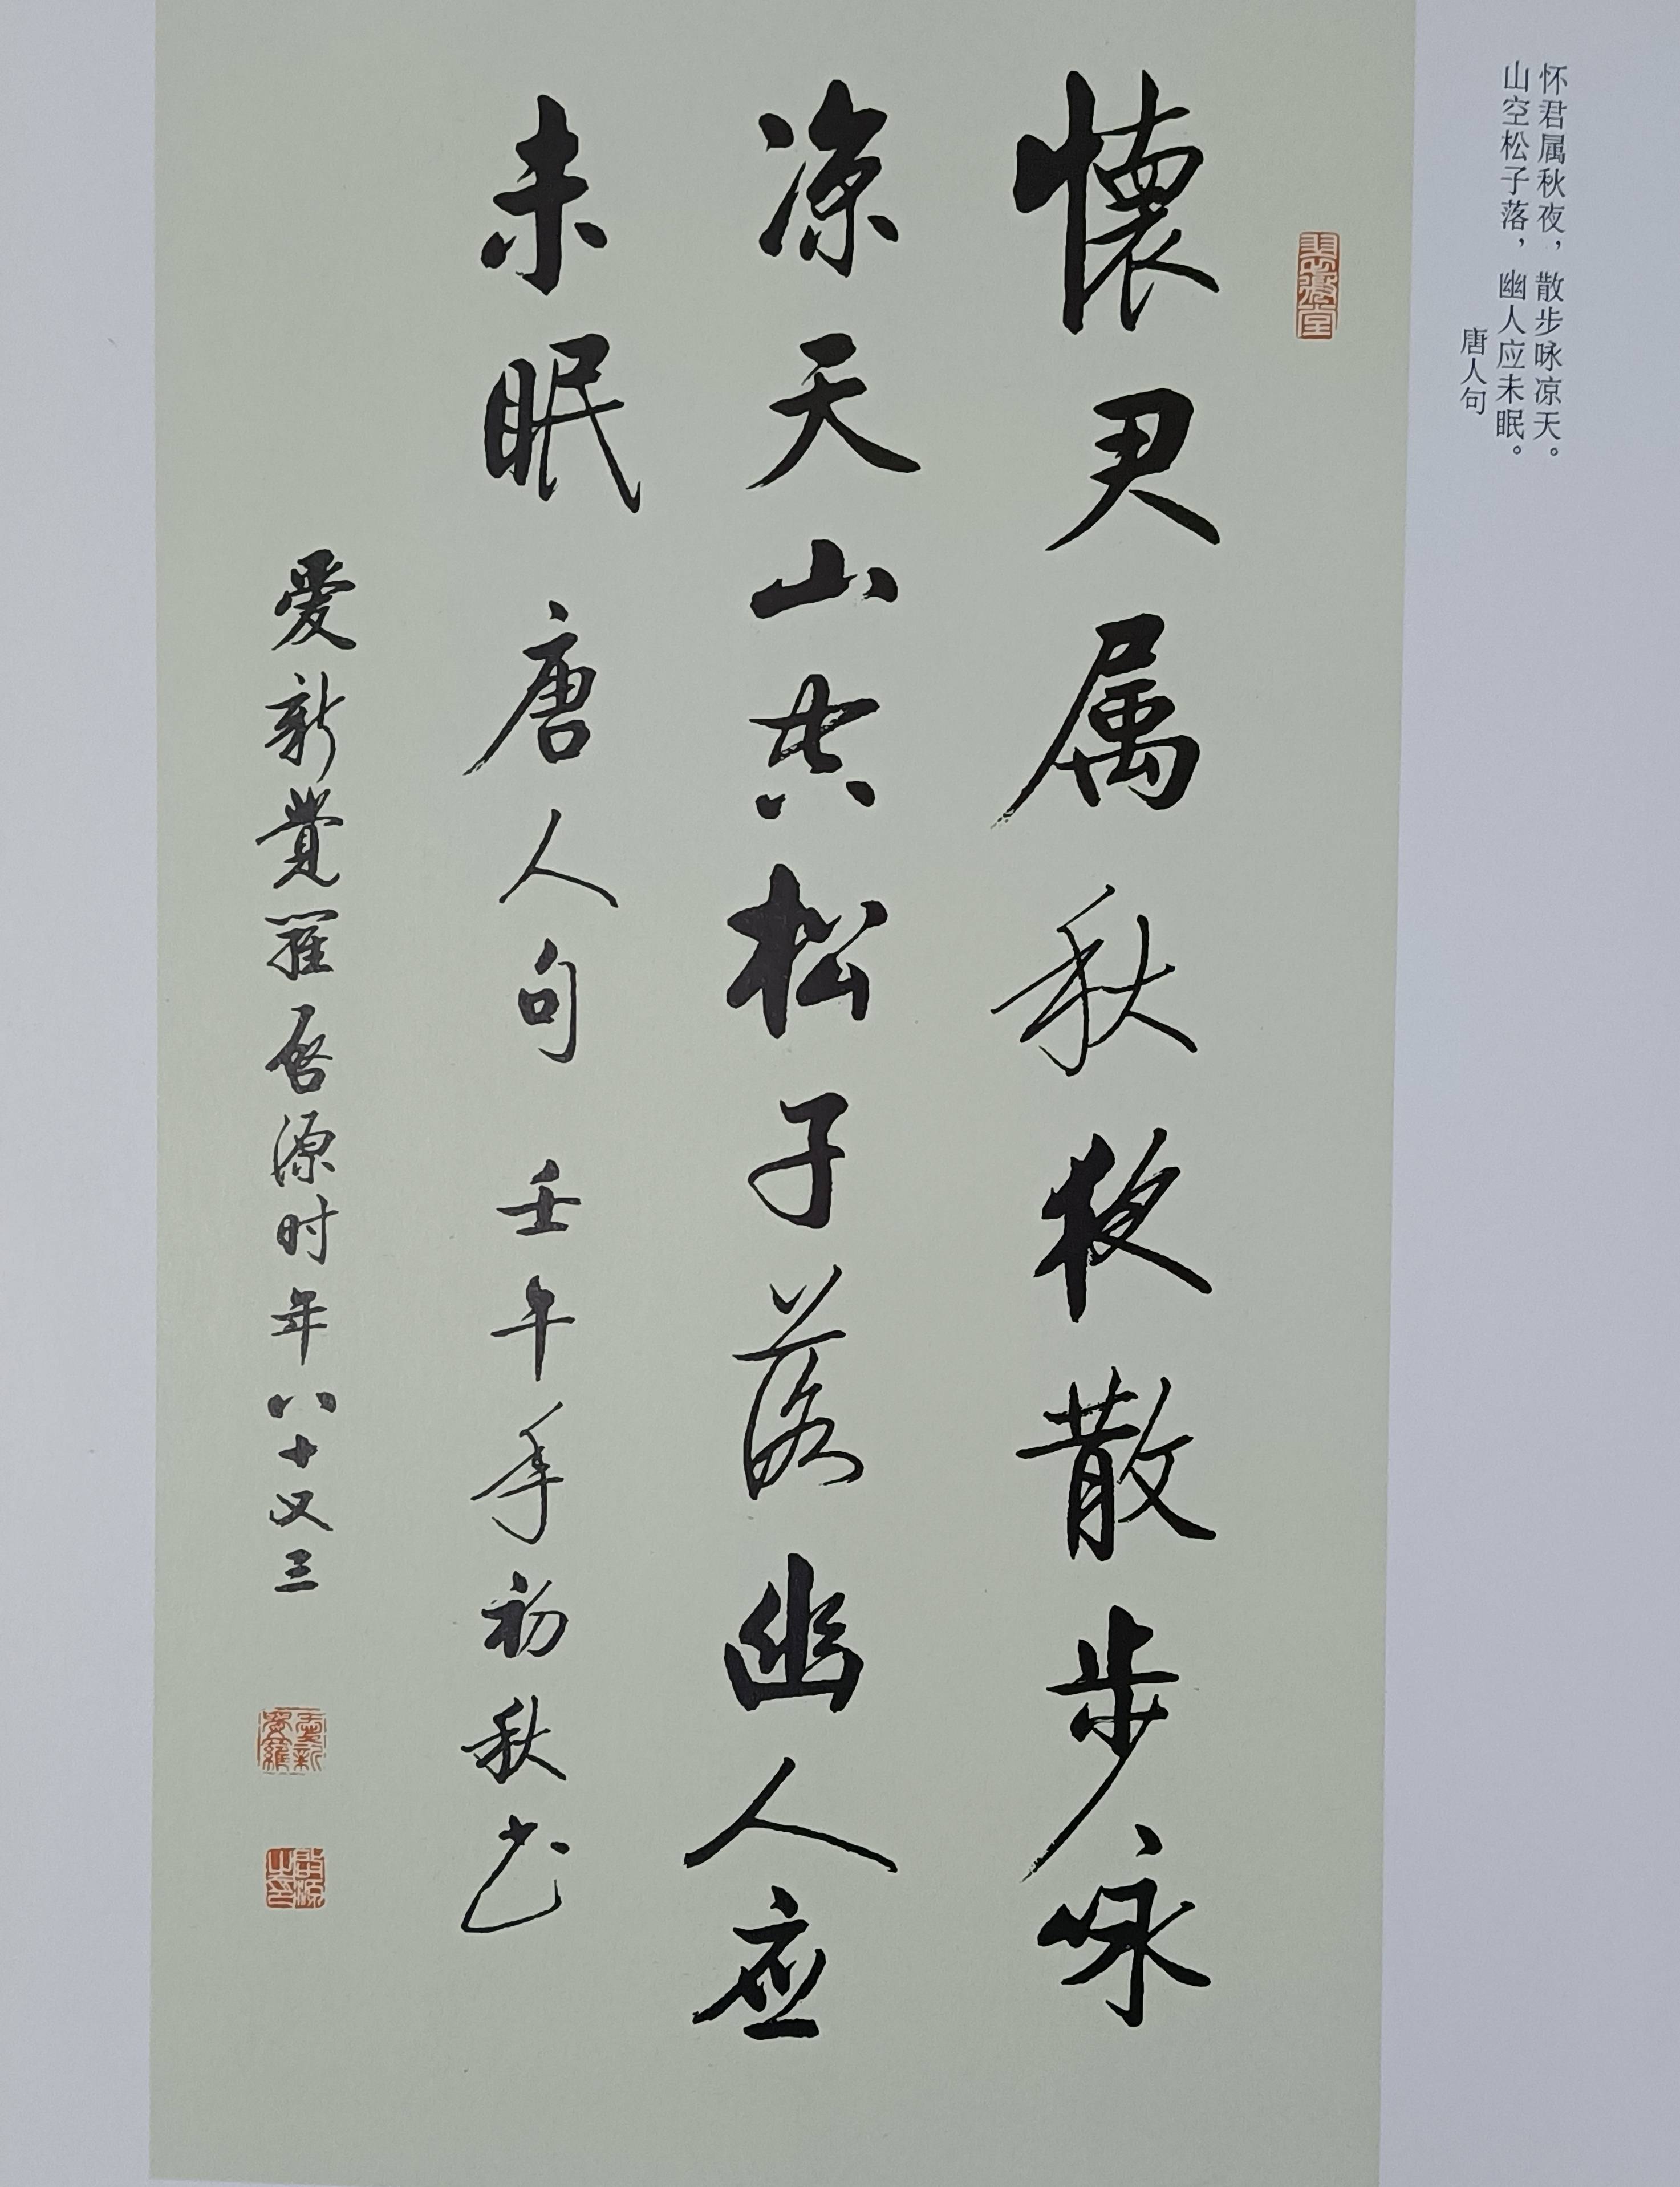 怀君属秋夜，散步咏凉天。
山空松子落，幽人应未眠。
唐人句
懷君属秋夜散步咏
凉天山空松子落幽人应
未眠 唐人句 壬午年初秋书
爱新覺羅启源时年八十又三
愛新覺羅
啟源之印